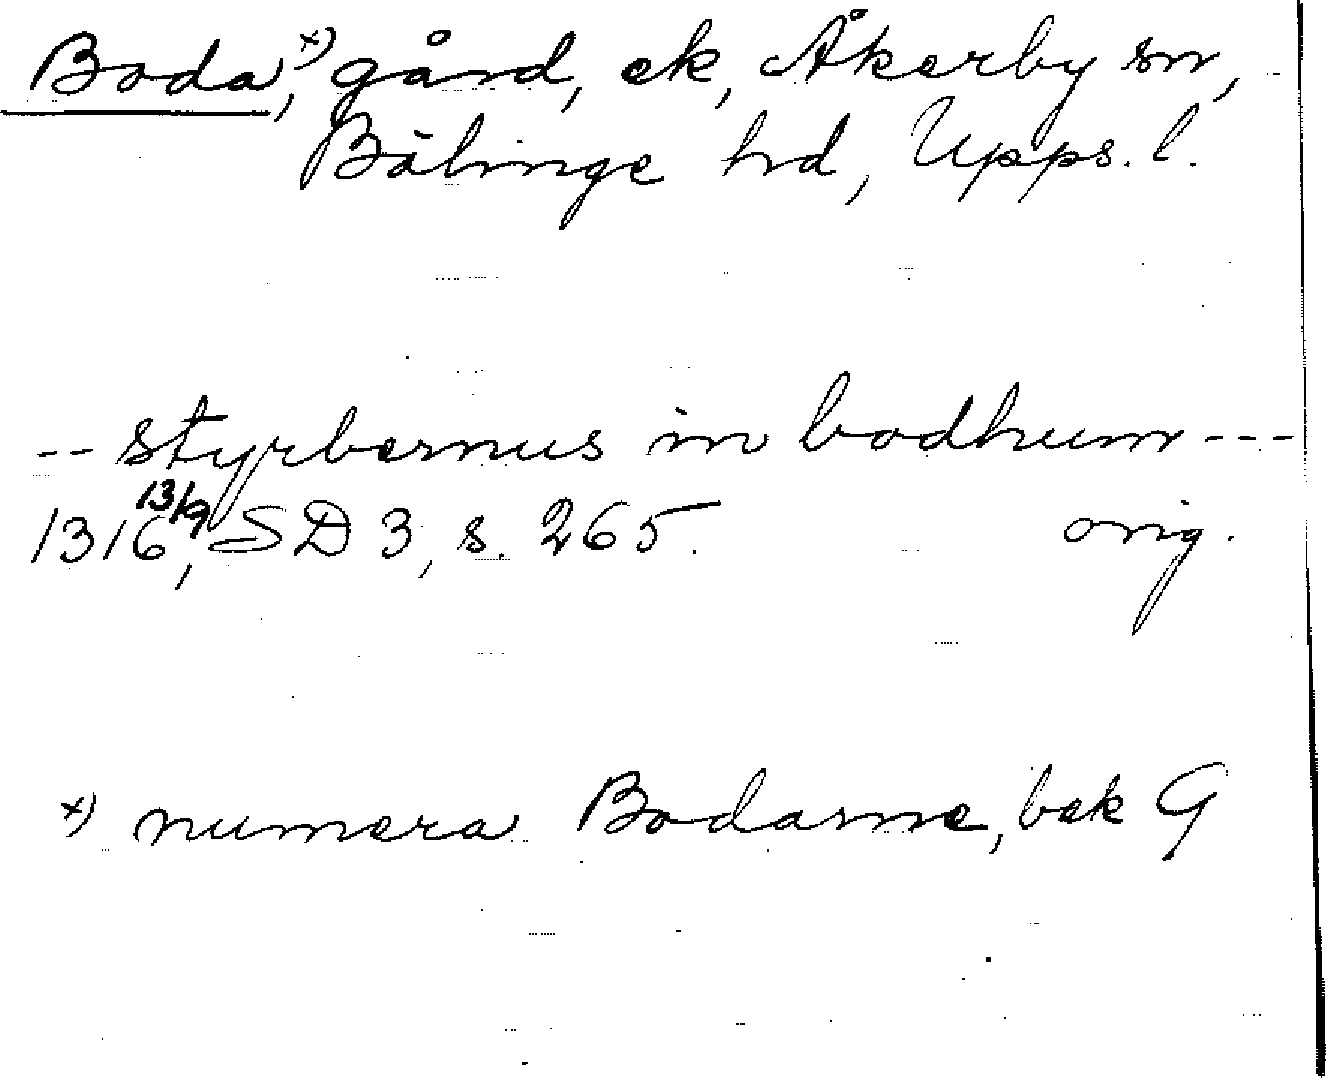 Boda,ˣ⁾ gård, ek, Åkerby sn,
Bälinge hd, Upps. l.
-- styrbernus in bodhum ---
1316 13/9, SD 3, s. 265. orig.
x) numera Bodarne, bek G